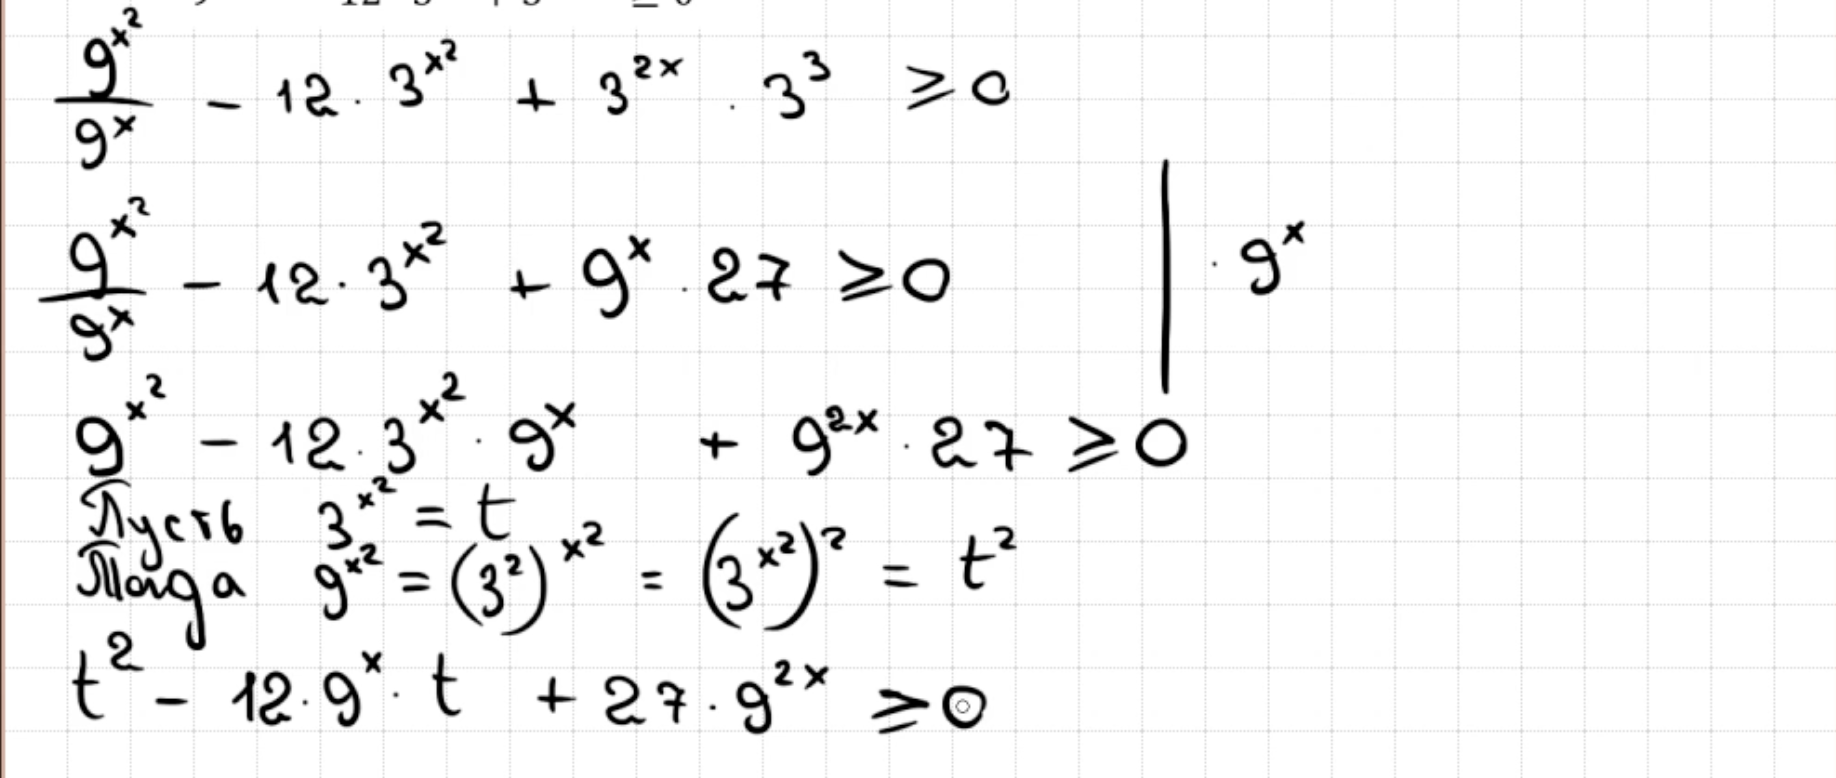 9^(x^2)/9^x - 12 · 3^(x^2) + 3^(2x) · 3^3 ⩾ 0
9^(x^2)/9^x - 12 · 3^(x^2) + 9^x · 27 ⩾ 0 | · 9^x
9^(x^2) - 12 · 3^(x^2) · 9^x + 9^(2x) · 27 ⩾ 0
Пусть 3^(x^2) = t
Тогда 9^(x^2) = (3^2)^(x^2) = (3^(x^2))^2 = t^2
t^2 - 12 · 9^x · t + 27 · 9^(2x) ⩾ 0